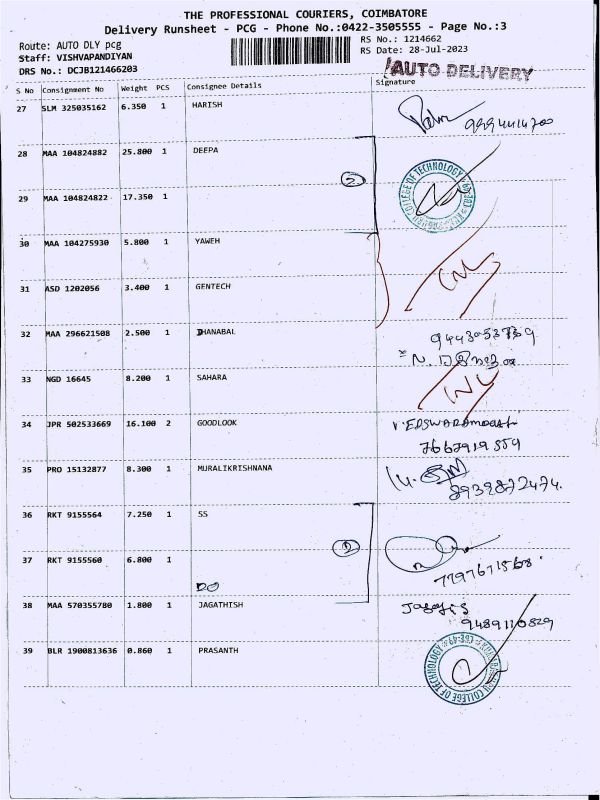 THE PROFESSIONAL COURIERS, COIMBATORE
Delivery Runsheet - PCG - Phone No.:0422-3505555 - Page No.:3
Route: AUTO DLY pcg
RS No.: 1214662
Staff: VISHVAPANDIYAN
RS Date: 28-Jul-2023
DRS No.: DCJB121466203
AUTO DELIVERY
S No Consignment No Weight PCS Consignee Details Signature
27 SLM 325035162 6.350 1 HARISH
9994414700
28 MAA 104824882 25.800 1 DEEPA
2
29 MAA 104824822 17.350 1
COLLEGE OF TECHNOLOGY
30 MAA 104275930 5.800 1 YAWEH
31 ASD 1202056 3.400 1 GENTECH
32 MAA 296621508 2.500 1 DHANABAL
33 NGD 16645 8.200 1 SAHARA
34 JPR 502533669 16.100 2 GOODLOOK
7667919559
35 PRO 15132877 8.300 1 MURALIKRISHNANA
8939872474.
36 RKT 9155564 7.250 1 SS
2
37 RKT 9155560 6.800 1
DO
7797671568.
38 MAA 570355780 1.800 1 JAGATHISH
9489110829
39 BLR 1900813636 0.860 1 PRASANTH
COLLEGE OF TECHNOLOGY